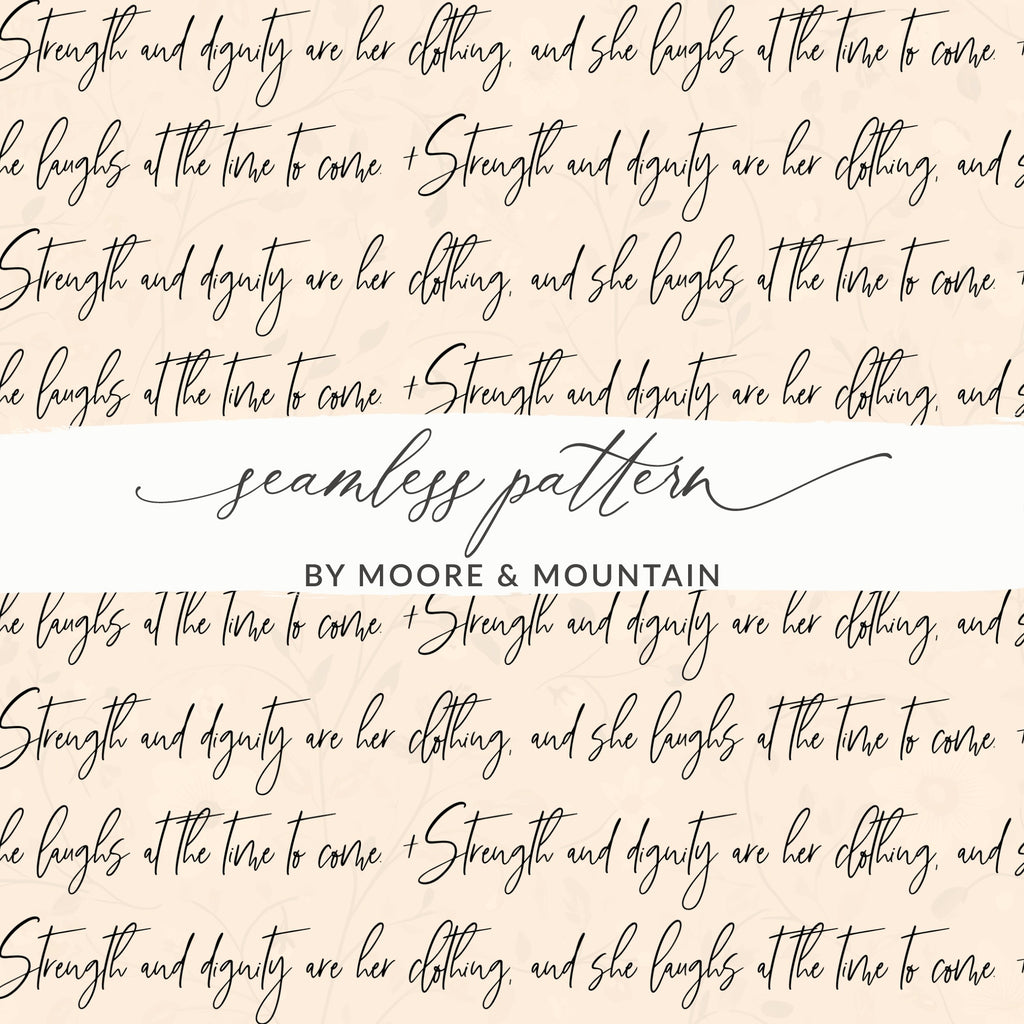 Strength and dignity are her clothing, and she laughs at the time to come. +
he laughs at the time to come. +Strength and dignity are her clothing, and s
Strength and dignity are her clothing, and she laughs at the time to come. +
he laughs at the time to come. +Strength and dignity are her clothing, and s
seamless pattern
BY MOORE & MOUNTAIN
he laughs at the time to come. +Strength and dignity are her clothing, and s
Strength and dignity are her clothing, and she laughs at the time to come. +
he laughs at the time to come. +Strength and dignity are her clothing, and s
Strength and dignity are her clothing, and she laughs at the time to come. +